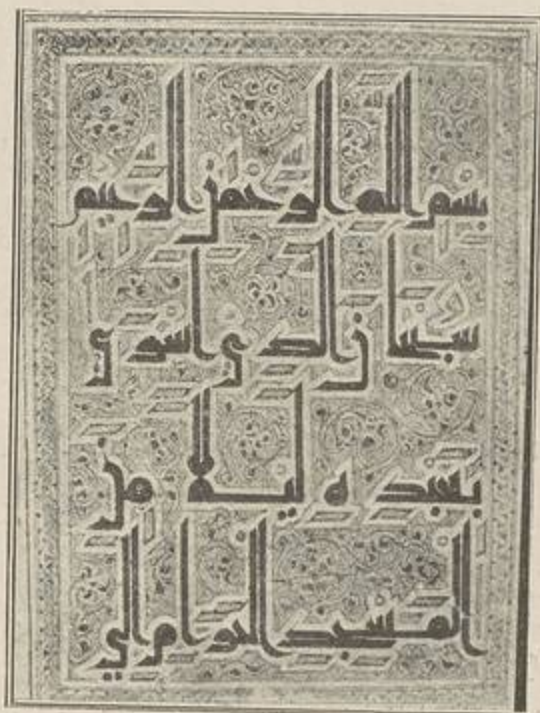 بِسْمِ اللهِ الرَّحْمٰنِ الرَّحِيْمِ
سُبْحٰنَ الَّذِيْ اَسْرٰى
بِعَبْدِهٖ لَيْلًا مِنَ
الْمَسْجِدِ الْحَرَامِ اِلَى